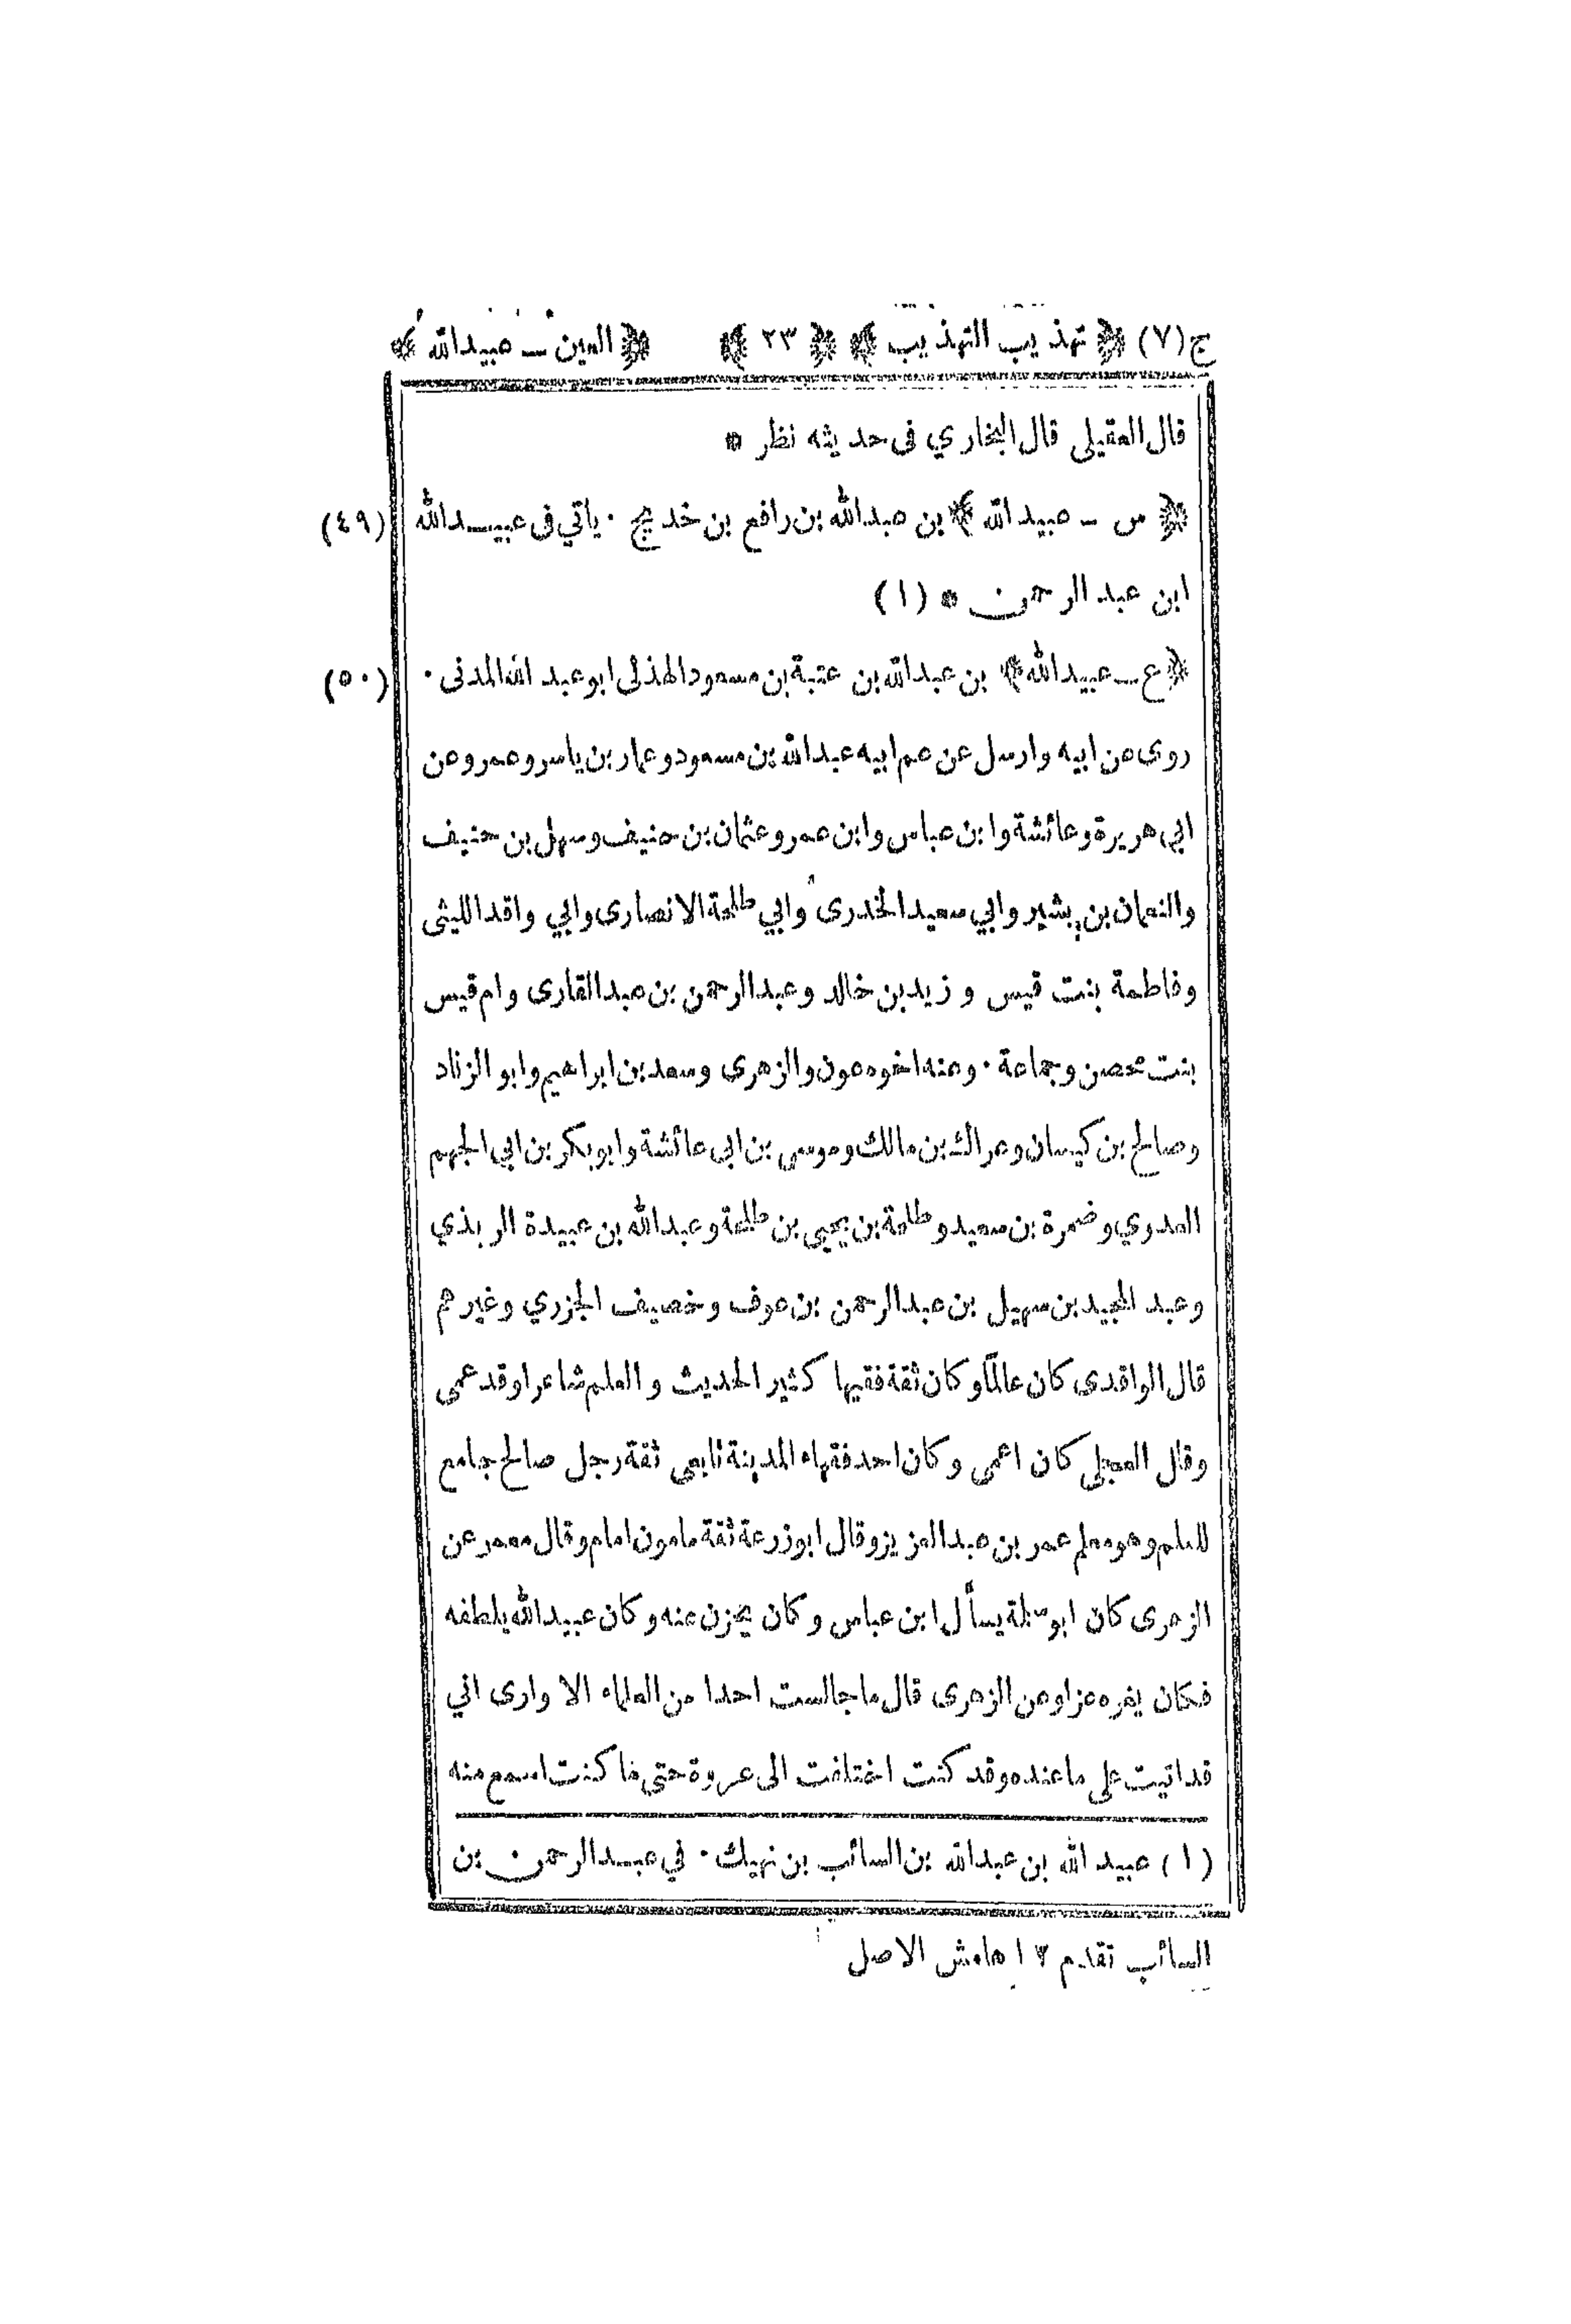 ج(٧) ﴿ تهذيب التهذيب ﴾ ﴿ ٢٣ ﴾ ﴿ العين ــ عبيدالله ﴾
قال العقيلى قال البخاري فى حديثه نظر *
﴿ س - عبيد الله ﴾ بن عبدالله بن رافع بن خديج ٠ يأتي فى عبيــدالله (٤٩)
ابن عبد الرحمن * (١)
﴿ع ــ عبيدالله﴾ بن عبدالله بن عتبة بن مسعود الهذلى ابوعبد الله المدنى ٠ (٥٠)
روى عن ابيه وارسل عن عم ابيه عبدالله بن مسعود وعمار بن ياسر وعمر وعن
ابي هريرة وعائشة وابن عباس وابن عمر وعثمان بن حنيف وسهل بن حنيف
والنعمان بن بشير وابي سعيد الخدرى وابي طلحة الانصارى وابي واقد الليثى
وفاطمة بنت قيس وزيد بن خالد وعبدالرحمن بن عبد القارى وام قيس
بنت محصن وجماعة ٠ وعنه اخوه عون والزهرى وسعد بن ابراهيم وابو الزناد
وصالح بن كيسان وعراك بن مالك وموسى بن ابى عائشة وابوبكر بن ابي الجهم
العدوي وضمرة بن سعيد وطلحة بن يحيى بن طلحة وعبدالله بن عبيدة الربذي
وعبد المجيد بن سهيل بن عبدالرحمن بن عوف وخصيف الجزري وغيرهم
قال الواقدى كان عالماً وكان ثقة فقيها كثير الحديث والعلم شاعرا وقد عمى
وقال العجلي كان اعمى وكان احد فقهاء المدينة تابعى ثقة رجل صالح جامع
للعلم وهو معلم عمر بن عبد العزيز وقال ابوزرعة ثقة مامون امام وقال معمر عن
الزهرى كان ابو سلمة يسأل ابن عباس وكان يخزن عنه وكان عبيدالله يلطفه
فكان يغره عزا وعن الزهرى قال ما جالست احدا من العلماء الا وارى اني
قد اتيت على ما عنده وقد كنت اختلفت الى عروة حتى ما كنت اسمع منه
(١) عبيد الله بن عبدالله بن السائب بن نهيك ٠ في عبـدالرحمن بن
السائب تقدم ١٢ هامش الاصل